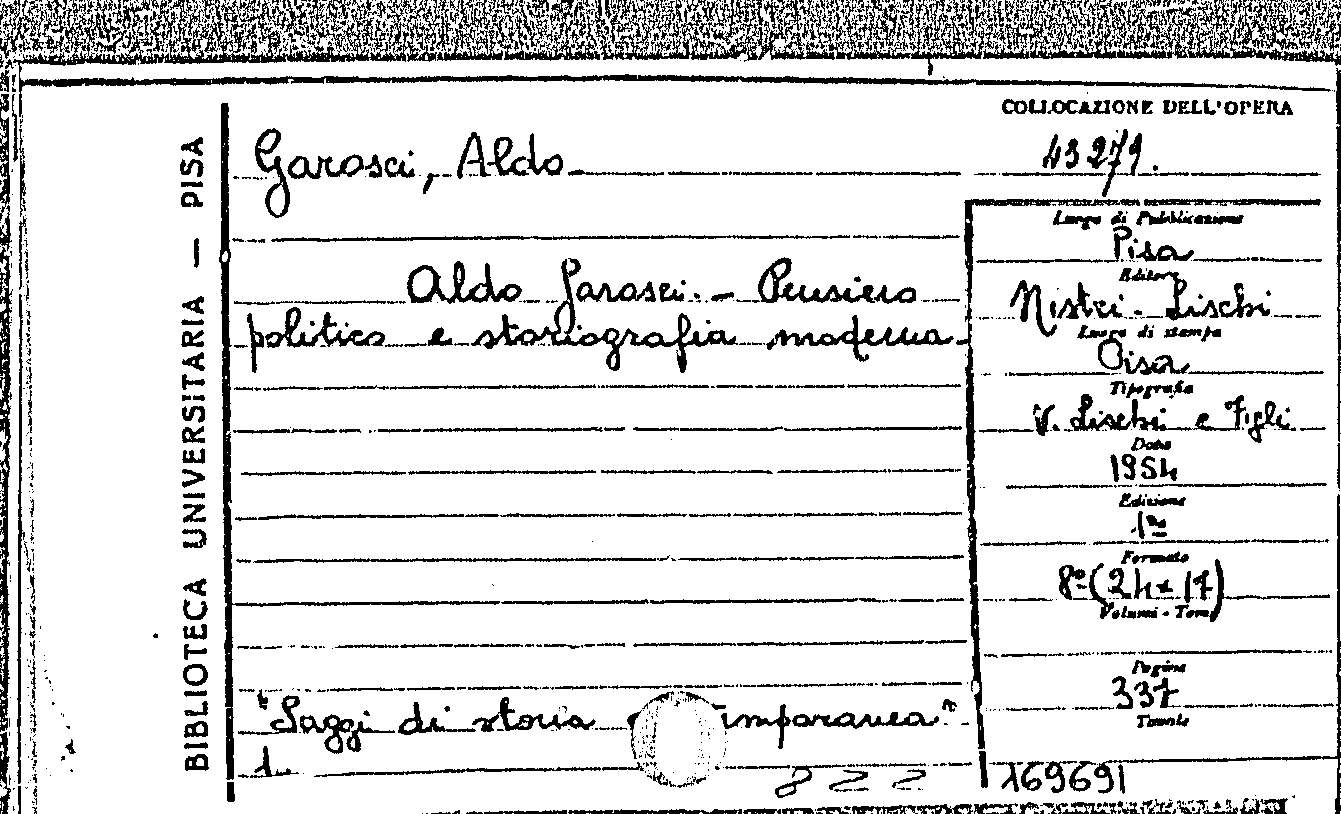 BIBLIOTECA UNIVERSITARIA — PISA
COLLOCAZIONE DELL'OPERA
Garosci, Aldo
43279.
Aldo Garosci. - Pensiero
politico e storiografia moderna -
Luogo di Pubblicazione
Pisa
Editore
Nistri - Lischi
Luogo di stampa
Pisa
Tipografia
V. Lischi e Figli
Data
1954
Edizione
1ª
Formato
8º (24 x 17)
Volumi - Tomi
Pagine
337
Tavole
"Saggi di storia
1.
822
169691